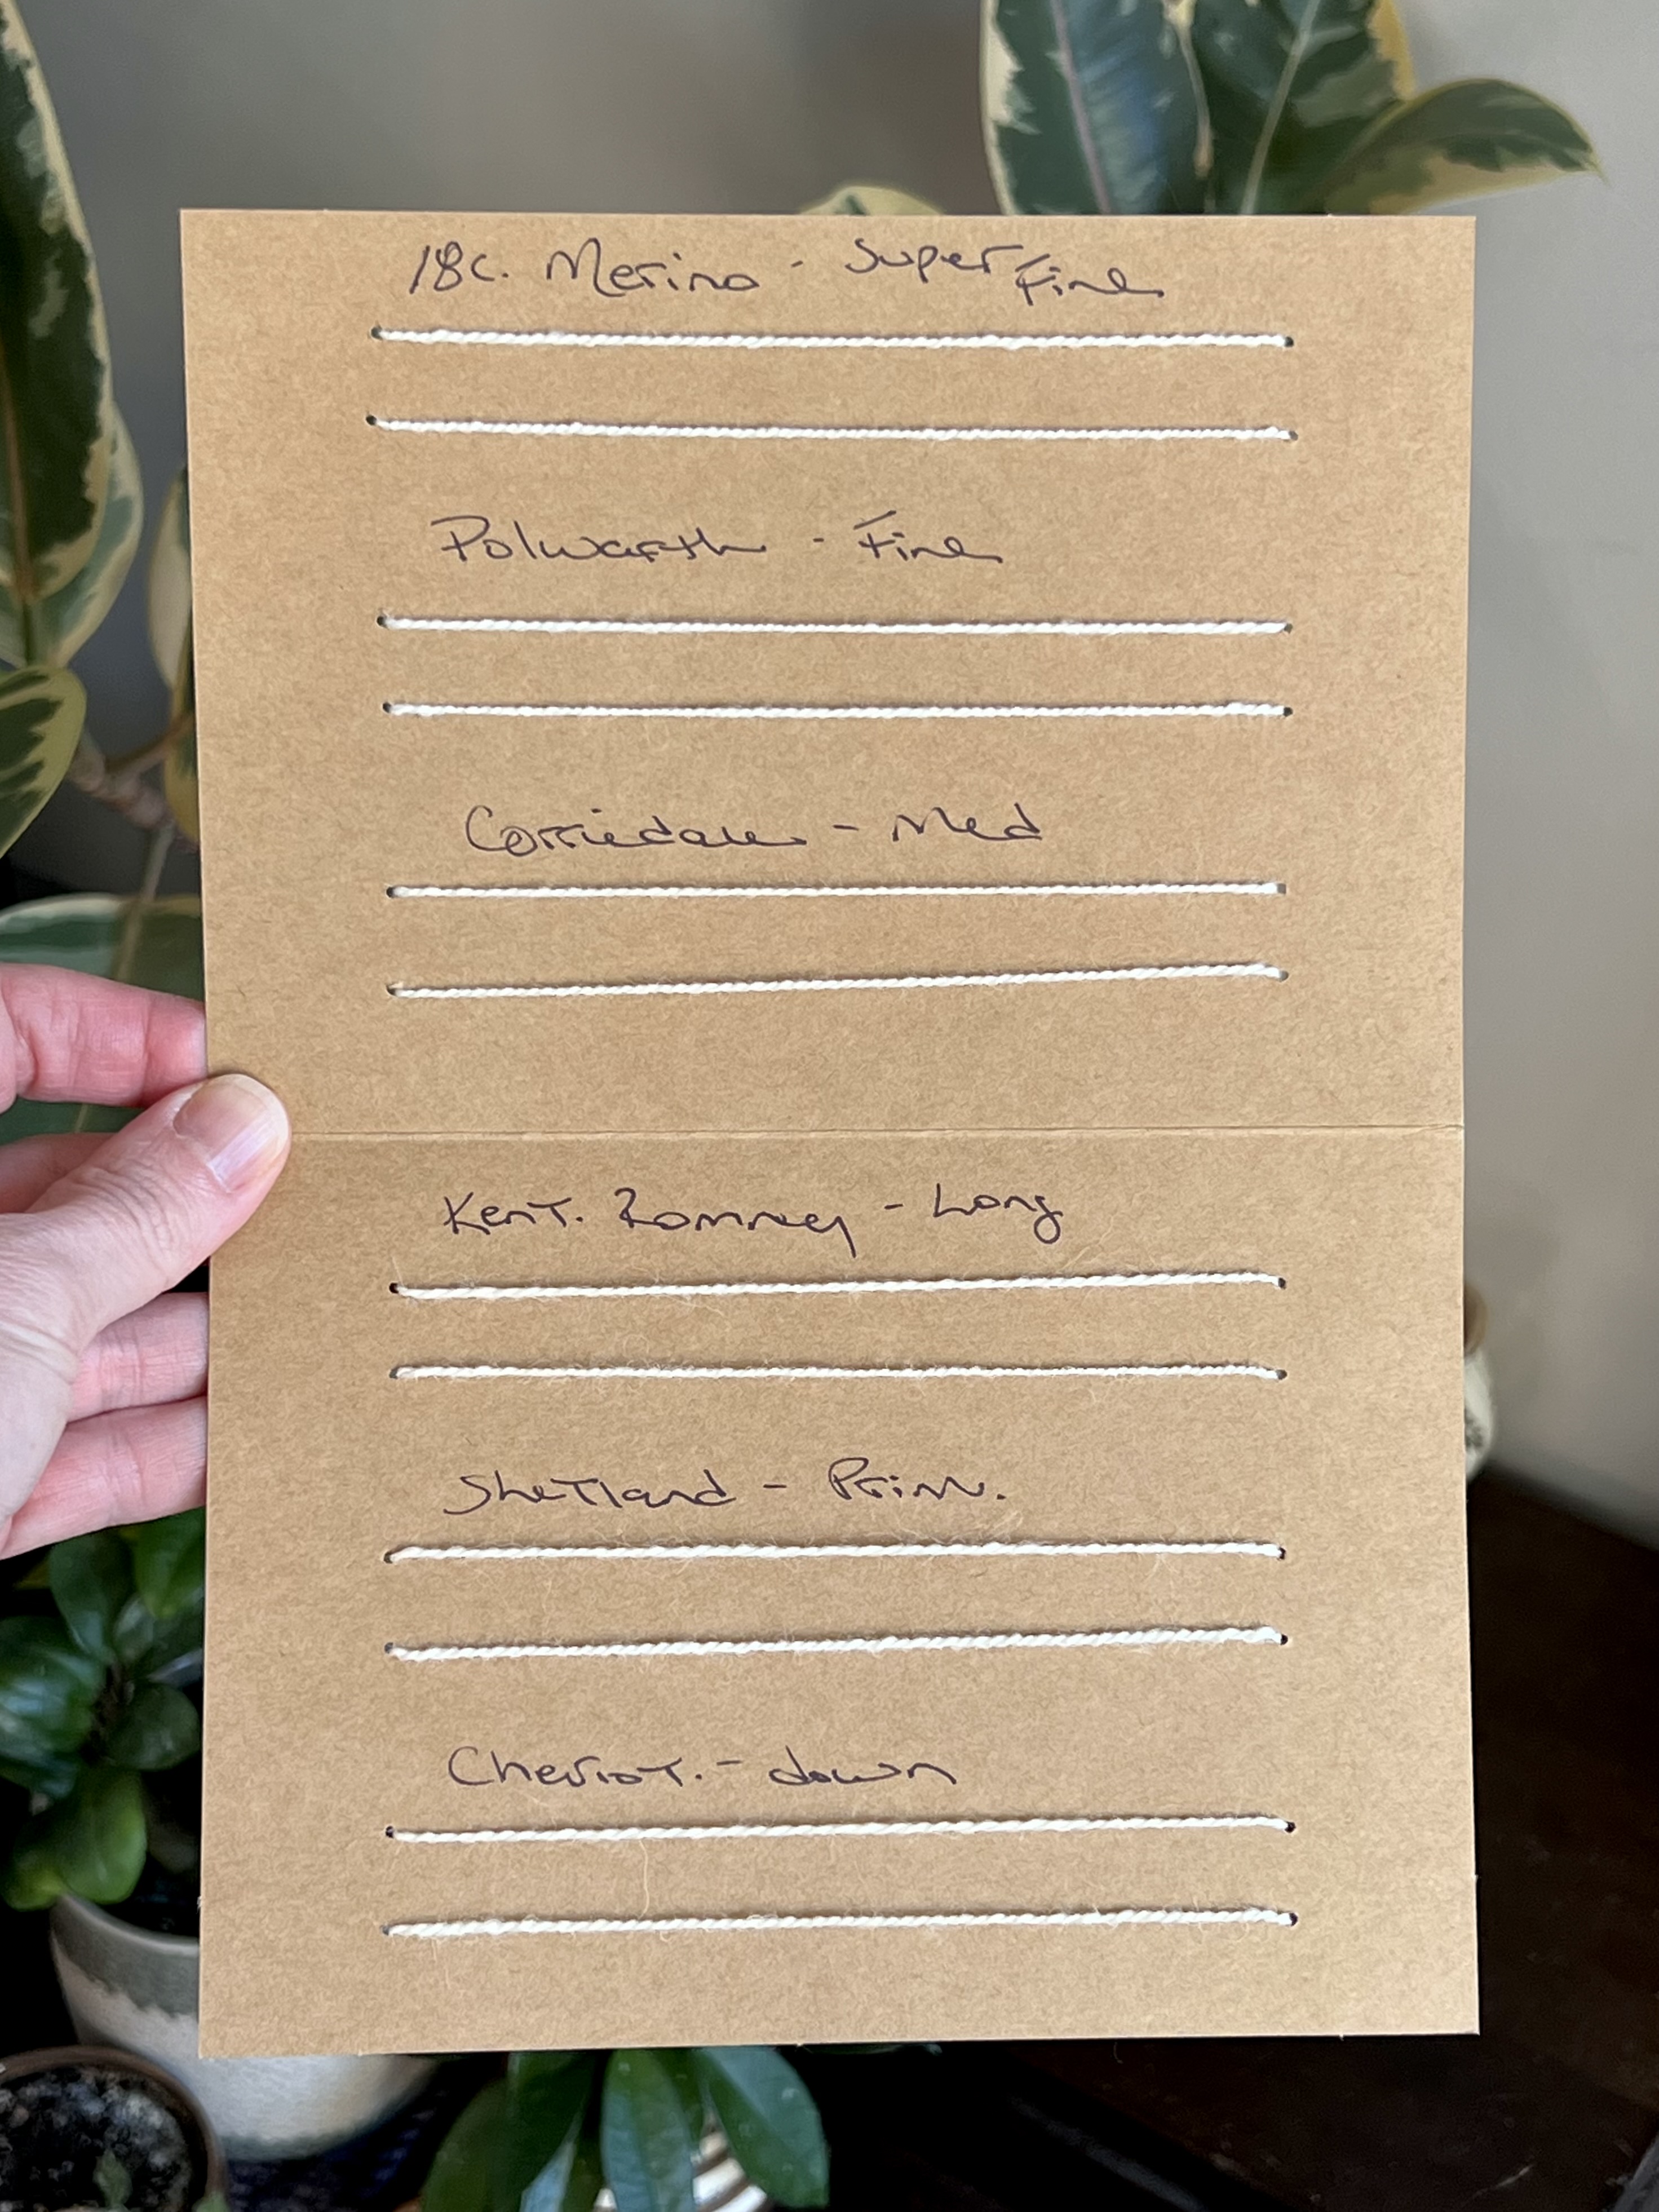 18c. Merino - Super Fine
Polwarth - Fine
Corriedale - Med
Kent. Romney - Long
Shetland - Prim.
Cheviot. - down